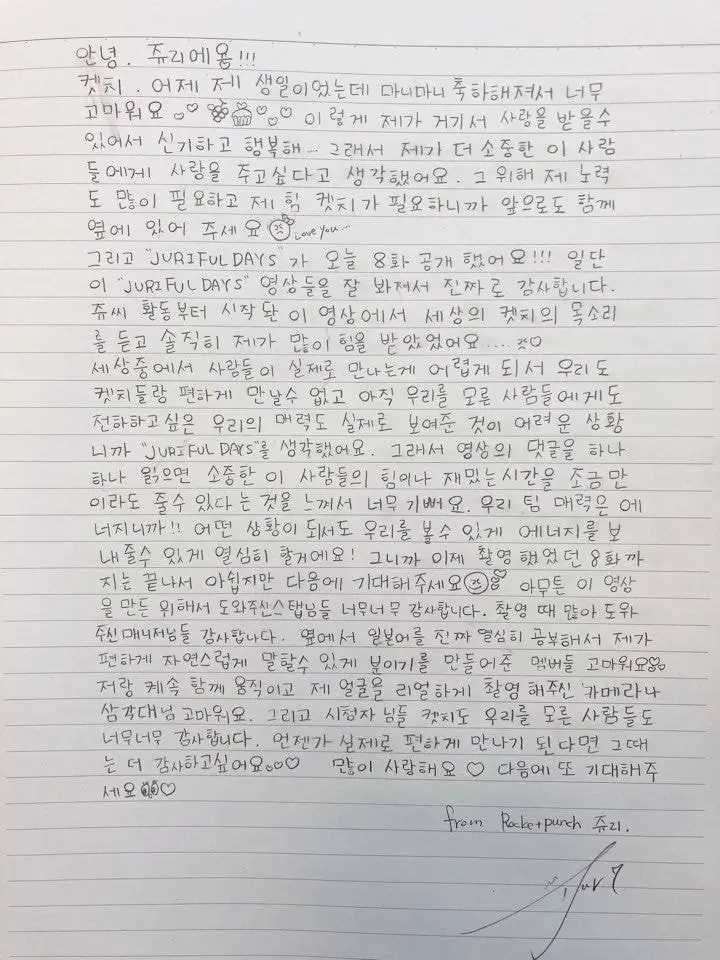 안녕. 쥬리에용!!!
켓치. 어제 제 생일이었는데 마니마니 축하해져서 너무
고마워요 이렇게 제가 거기서 사랑을 받을수
있어서 신기하고 행복해... 그래서 제가 더 소중한 이 사람
들에게 사랑을 주고싶다고 생각했어요. 그 위해 제 노력
도 많이 필요하고 제 힘 켓치가 필요하니까 앞으로도 함께
옆에 있어 주세요 Love you...
그리고 "JURIFUL DAYS"가 오늘 8화 공개 했어요!!! 일단
이 "JURIFUL DAYS" 영상들을 잘 봐져서 진짜로 감사합니다.
쥬씨 활동부터 시작 돤 이 영상에서 세상의 켓치의 목소리
를 듣고 솔직히 제가 많이 힘을 받았었어요....
세상중에서 사람들이 실제로 만나는게 어렵게 되서 우리도
켓치들랑 편하게 만날수 없고 아직 우리를 모른 사람들에게도
전하하고싶은 우리의 매력도 실제로 보여준 것이 어려운 상황
니까 "JURIFUL DAYS"를 생각했어요. 그래서 영상의 댓글을 하나
하나 읽으면 소중한 이 사람들의 힘이나 재밌는시간을 조금만
이라도 줄수 있다는 것을 느껴서 너무 기뻐요. 우리 팀 매력은 에
너지니까!! 어떤 상황이 되서도 우리를 볼수 있게 에너지를 보
내줄수 있게 열심히 할거에요! 그니까 이제 촬영했었던 8화까
지는 끝나서 아쉽지만 다음에 기대해주세요 아무튼 이 영상
을 만든 위해서 도와주신스탭님들 너무너무 감사합니다. 촬영 때 많아 도와
주신매니저님들 감사합니다. 옆에서 일본어를 진짜 열심히 공부해서 제가
편하게 자연스럽게 말할수 있게 분이기를 만들어준 멤버들 고마워요
저랑 케속 함께 움직이고 제 얼굴을 리얼하게 촬영해주신 카메라나
삼각대님 고마워요. 그리고 시청자 님들 켓치도 우리를 모른 사람들도
너무너무 감사합니다. 언젠가 실제로 편하게 만나기 된다면 그때
는 더 감사하고싶어요 많이 사랑해요 다음에 또 기대해주
세요
from Rocketpunch 쥬리.